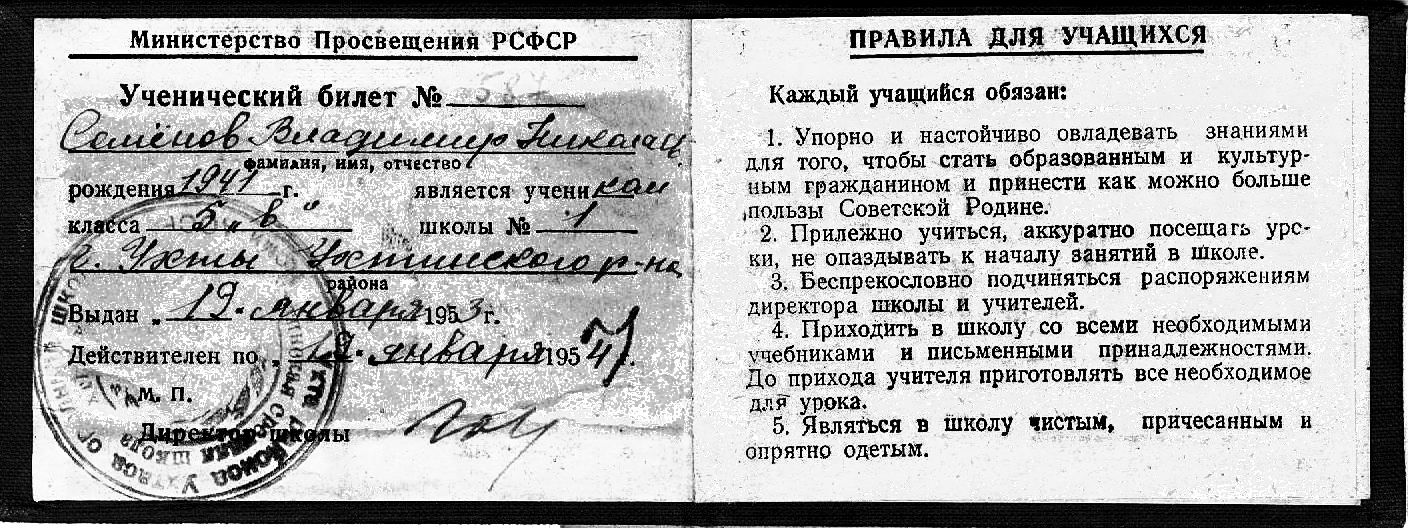 Министерство Просвещения РСФСР
Ученический билет № 58
Семёнов Владимир Николае
фамилия, имя, отчество
рождения 1941 г. является учени ком
класса 5 „в“ школы № 1
г. Ухты Ухтинского р-на
района
Выдан „ 19. января 1953 г.
Действителен по „ 19. января 1954 г.
М. П.
Директор школы
ПРАВИЛА ДЛЯ УЧАЩИХСЯ
Каждый учащийся обязан:
1. Упорно и настойчиво овладевать знаниями
для того, чтобы стать образованным и культур-
ным гражданином и принести как можно больше
пользы Советской Родине.
2. Прилежно учиться, аккуратно посещать уро-
ки, не опаздывать к началу занятий в школе.
3. Беспрекословно подчиняться распоряжениям
директора школы и учителей.
4. Приходить в школу со всеми необходимыми
учебниками и письменными принадлежностями.
До прихода учителя приготовлять все необходимое
для урока.
5. Являться в школу чистым, причесанным и
опрятно одетым.